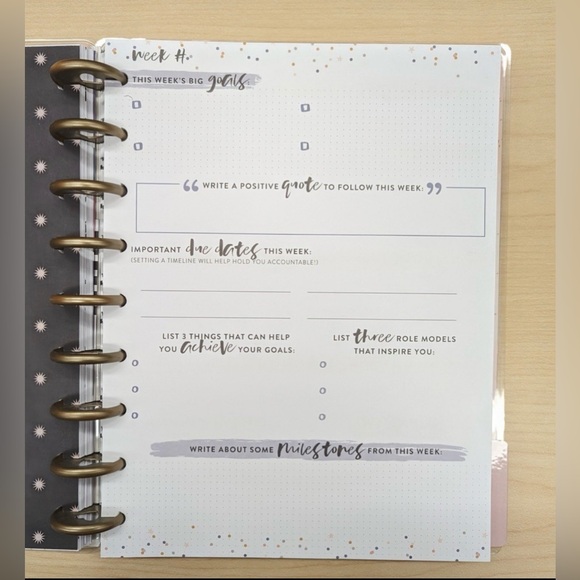 week #:
THIS WEEK'S BIG goals:
“ WRITE A POSITIVE quote TO FOLLOW THIS WEEK: ”
IMPORTANT due dates THIS WEEK:
(SETTING A TIMELINE WILL HELP HOLD YOU ACCOUNTABLE!)
LIST 3 THINGS THAT CAN HELP
YOU achieve YOUR GOALS:
LIST three ROLE MODELS
THAT INSPIRE YOU:
WRITE ABOUT SOME milestones FROM THIS WEEK: